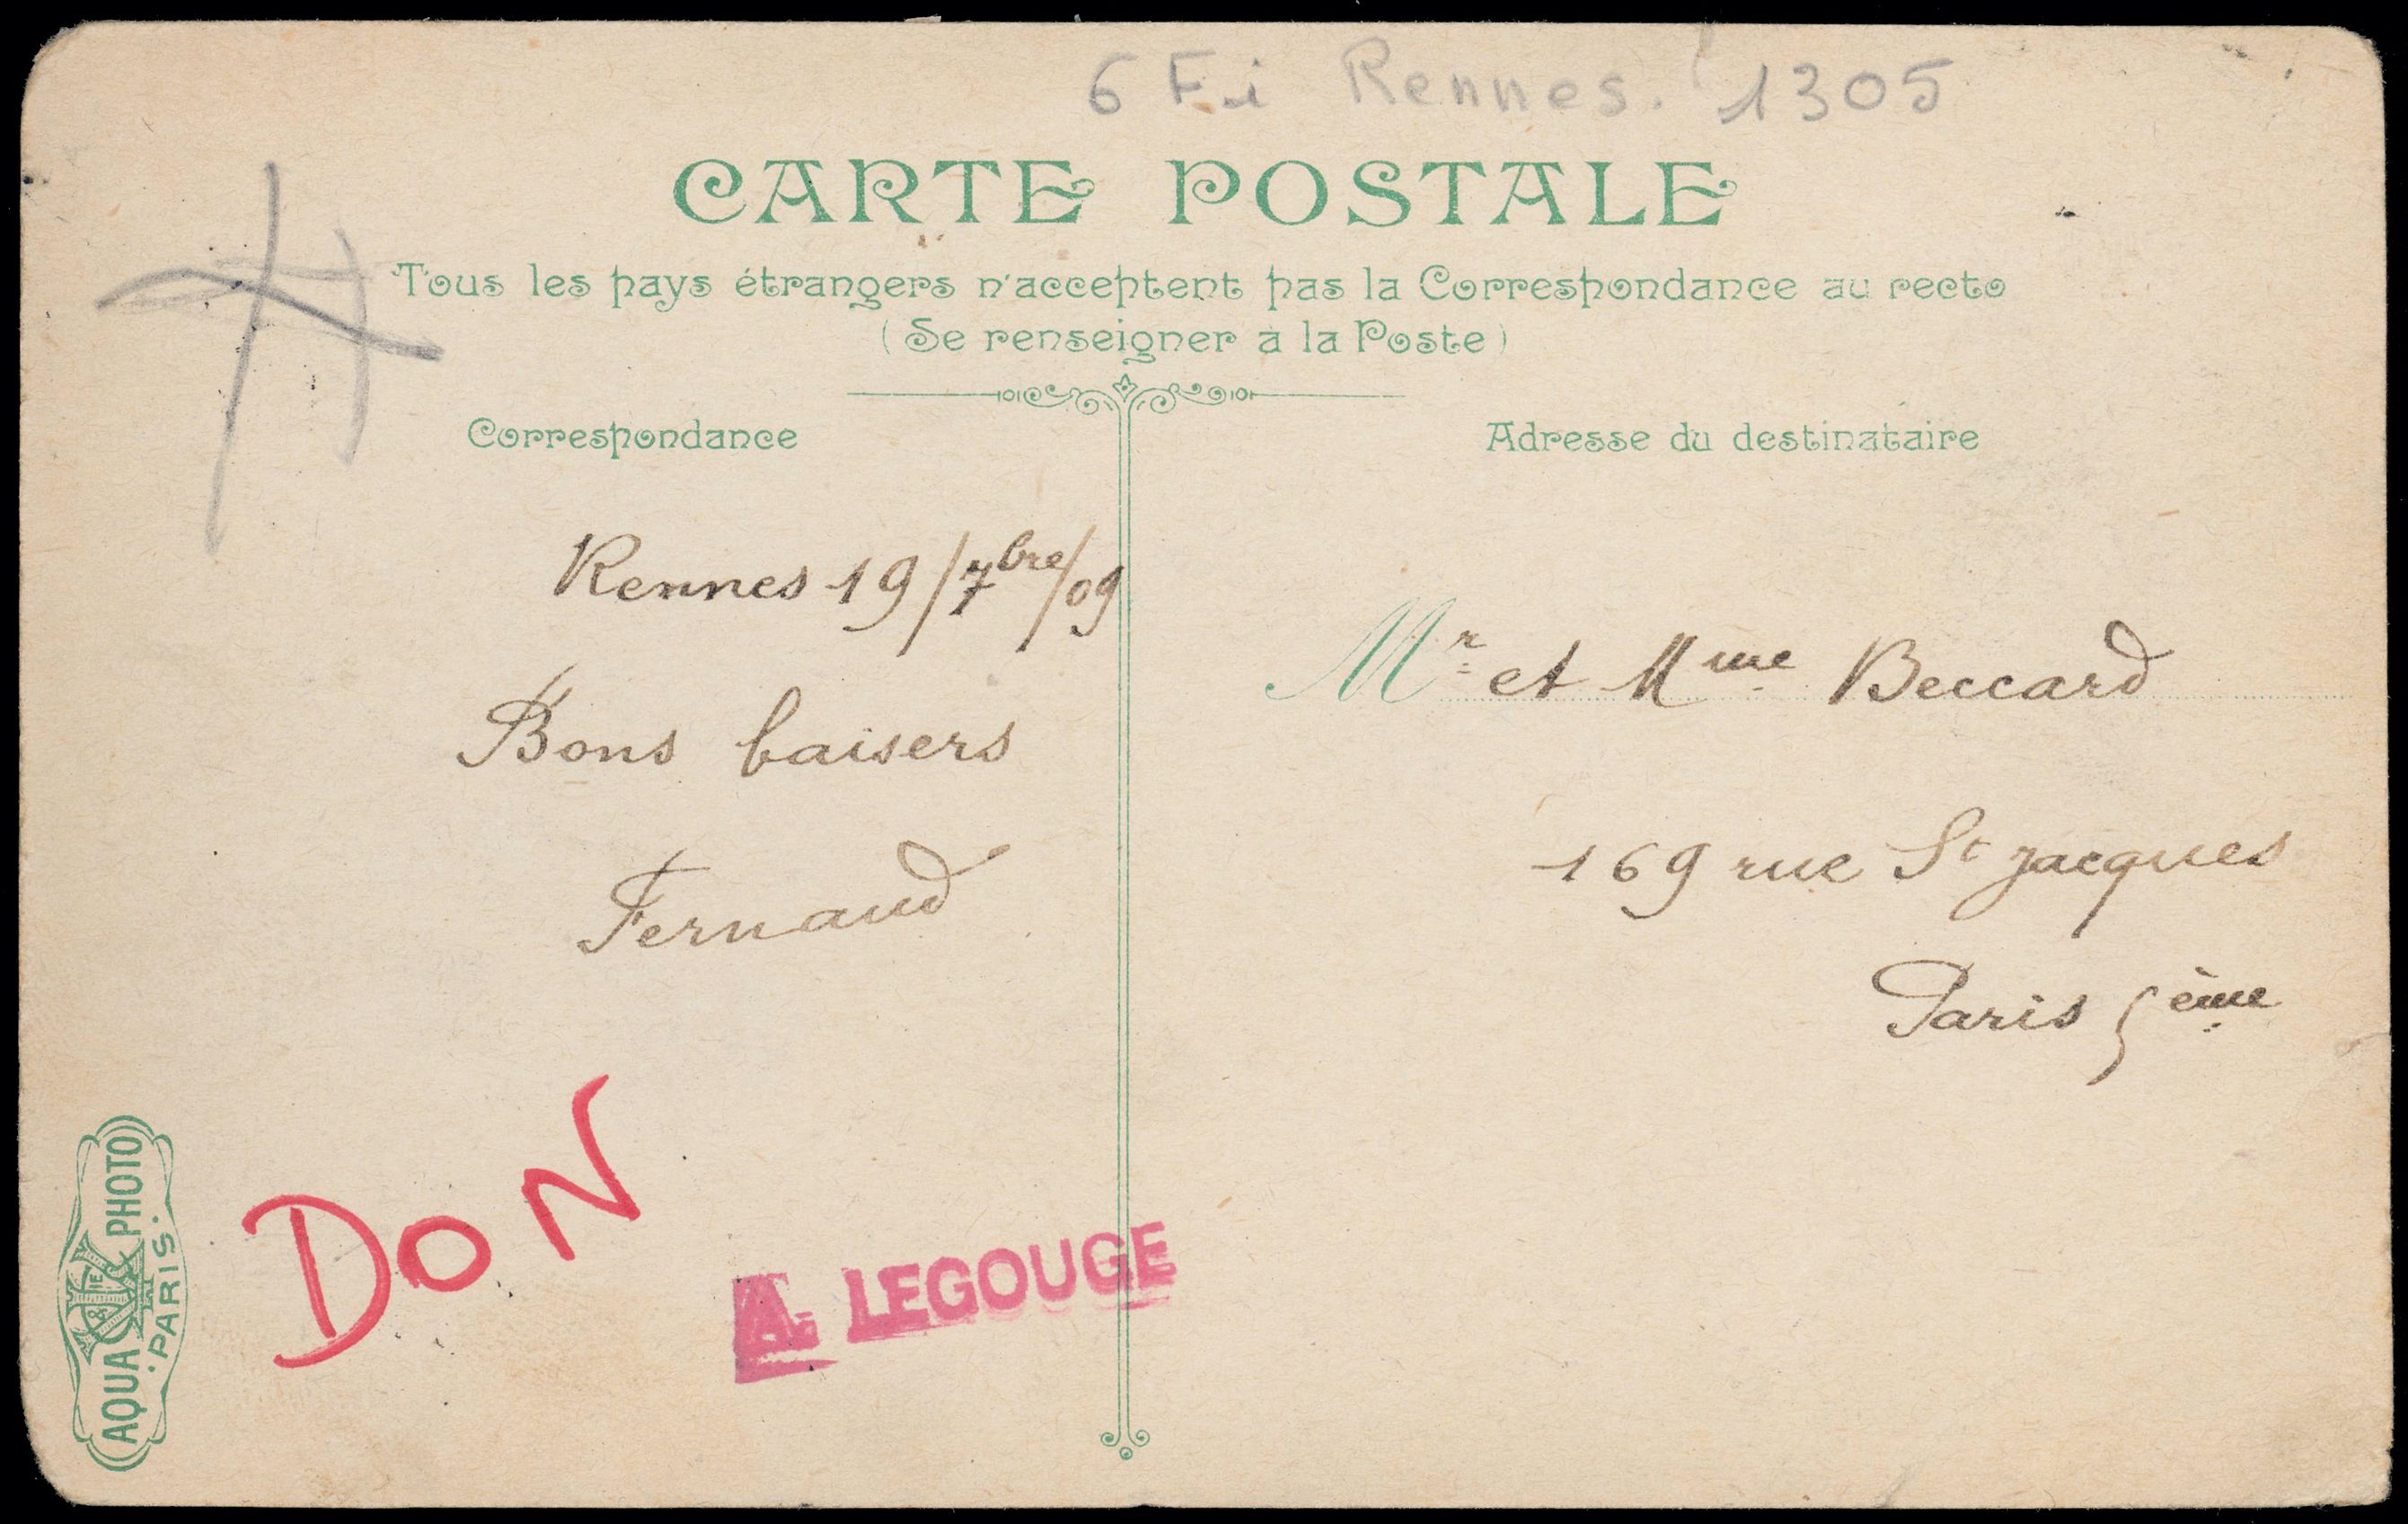 6 Fi Rennes. 1305
CARTE POSTALE
Tous les pays étrangers n'acceptent pas la Correspondance au recto
(Se renseigner à la Poste)
Correspondance
Rennes 19/7bre/09
Bons baisers
Fernand
Adresse du destinataire
Mr et Mme Beccard
169 rue St Jacques
Paris 5ème
DON
A. LEGOUGE
AQUA PHOTO
PARIS